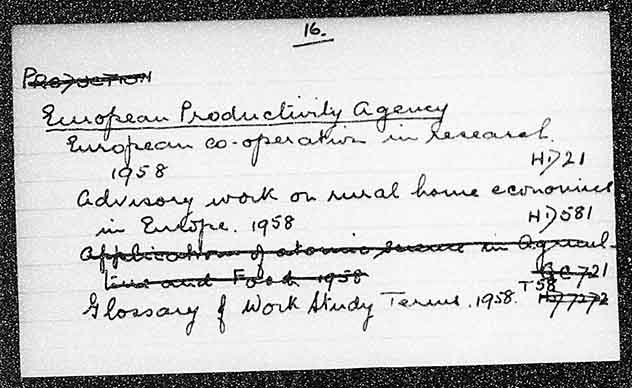 16.
PRODUCTION
European Productivity Agency
European co-operation in research
1958 HD21
Advisory work on rural home economics
in Europe. 1958 HD581
Application of atomic science in Agricul-
ture and Food 1958 QC721
Glossary of Work Study Terms. 1958. T58